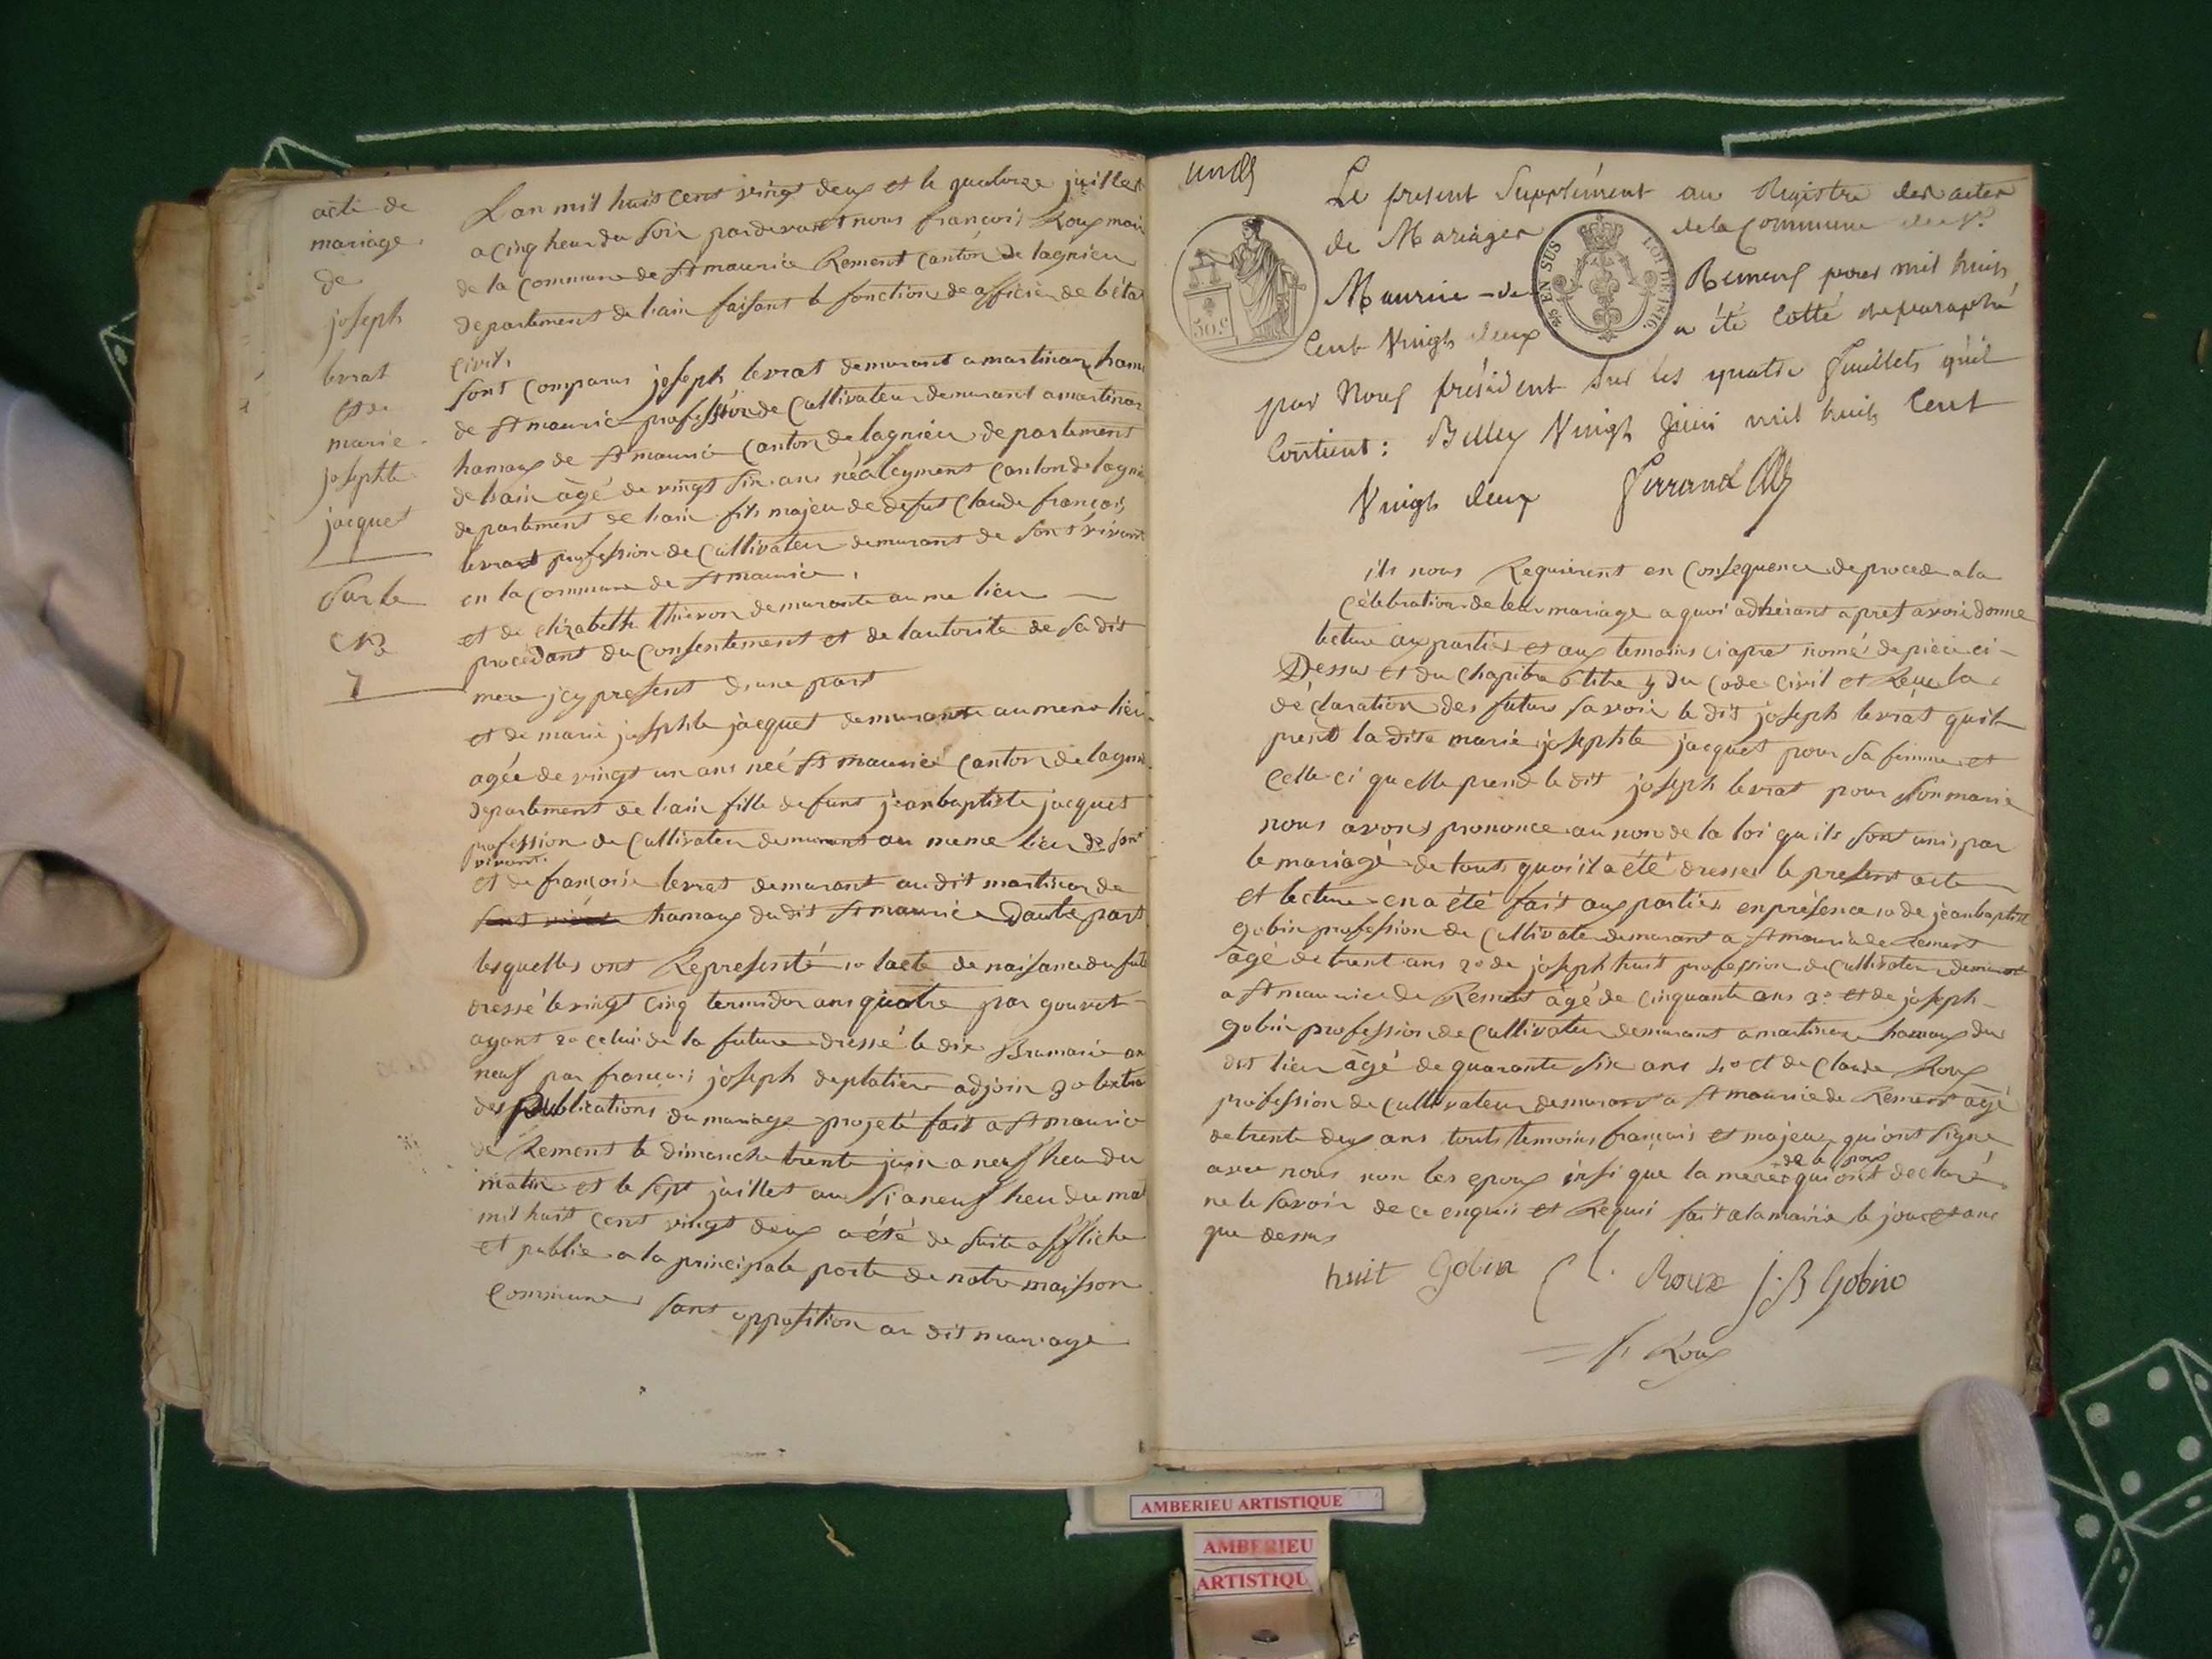 acte de
mariage
de
joseph
levrat
et de
marie
josephte
jacquet
Sur le
No
7
Lan mil huit cent vingt deux et le quatorze juillet
a cinq heur du soir pardevant nous françois Roux mair
de la commune de st maurice Rement canton de lagnieu
departement de lain faisant le fonction de officier de letat
civil
sont comparus joseph levrat demurant a martinaz ham
de st maurice profession de Cultivateur demurant a martinaz
hamaux de st maurice Canton de lagnieu departement
de lain âgé de vingt six ans né a leyment canton de lagni
departement de lain fils majeur de defut Claude françois
levrat profession de Cultivateur demurant de son vivant
en la commune de st maurice
et de elizabetth thievon demurante au me lieu
procedant du Consentement et de lautorite de sa dit
mere jcy present dune part
et de marie josephte jacquet demurante au meme lieu
agée de vingt un ans née st maurice Canton de lagni
departement de lain fille defunt jeanbaptiste jacquet
profession de Cultivateur demurant au meme lieu de son
vivant
et de françoise levrat demurant au dit martinaz de
hamaux du dit st maurice Dautre part
lesquelles ont Representé 1o lacte de naisance du futu
dressé le vingt cinq termidor ans quatre par gouvet
ayant 2o celui de la future dressé le dix Brumaire an
neuf par françois joseph deplatiere adjoin 3o lextra
des publications du mariage projeté fait a st maurice
de Rement le dimanche trente juin a neuf heu du
matin et le sept juillet au si a neuf heu du mat
mil huit cent vingt deux a été de suite affliche
et publie a la principale porte de notre maisson
Commune sans oppositions au dit mariage
Le present Supplément au Registre des actes
de Mariages de la Commune de St
Maurice de Remens pour mil huit
Cent Vingt deux a été Cotté et paraphé
par Nous président sur les quatre feuillets qu'il
Contient : Belley Vingt Juin mil huit Cent
Vingt deux
50 c
25 EN SUS
LOI DE 1816
ils nous Requierent en Consequence de procede a la
Célebration de leur mariage a quoi adhérant apret avoir donne
lecture aux parties et aux temoins ci apret nomé de piece ci
Dessus et du Chapitre 6 titre 5 du Code Civil et Reçue la
déclaration des futurs savoir le dit joseph levrat quil
prend la dite marie josephte jacquet pour sa femme et
Celle ci quelle prend le dit joseph levrat pour son marie
nous avons prononce au nom de la loi quils sont unis par
le mariagé de tout quoi il a été dresser le present acte
et lecture en a été fait aux parties en présence 1o de jeanbaptist
gobin profession de Cultivateur demurant a st maurice de Rement
âgé de trent ans 2o de joseph huit profession de Cultivateur demurant
a st maurice de Rement âgé de cinquante ans 3o et de joseph
gobin profession de Cultivateur demurant a martinaz hamaux du
dit lieu âgé de quarante six ans 4o et de Claude Roux
profession de Cultivateur demurant a st maurice de Rement âgé
de trente deux ans touts temoins français et majeur qui ont signe
avec nous non les epoux insi que la mere de lepoux qui ont declaré
ne le savoir de ce enquis et Requis fait a la mairie le jour et an
que dessus
huit Gobin Cl. Roux J. B Gobin
f. Roux
AMBERIEU ARTISTIQUE
AMBERIEU
ARTISTIQU